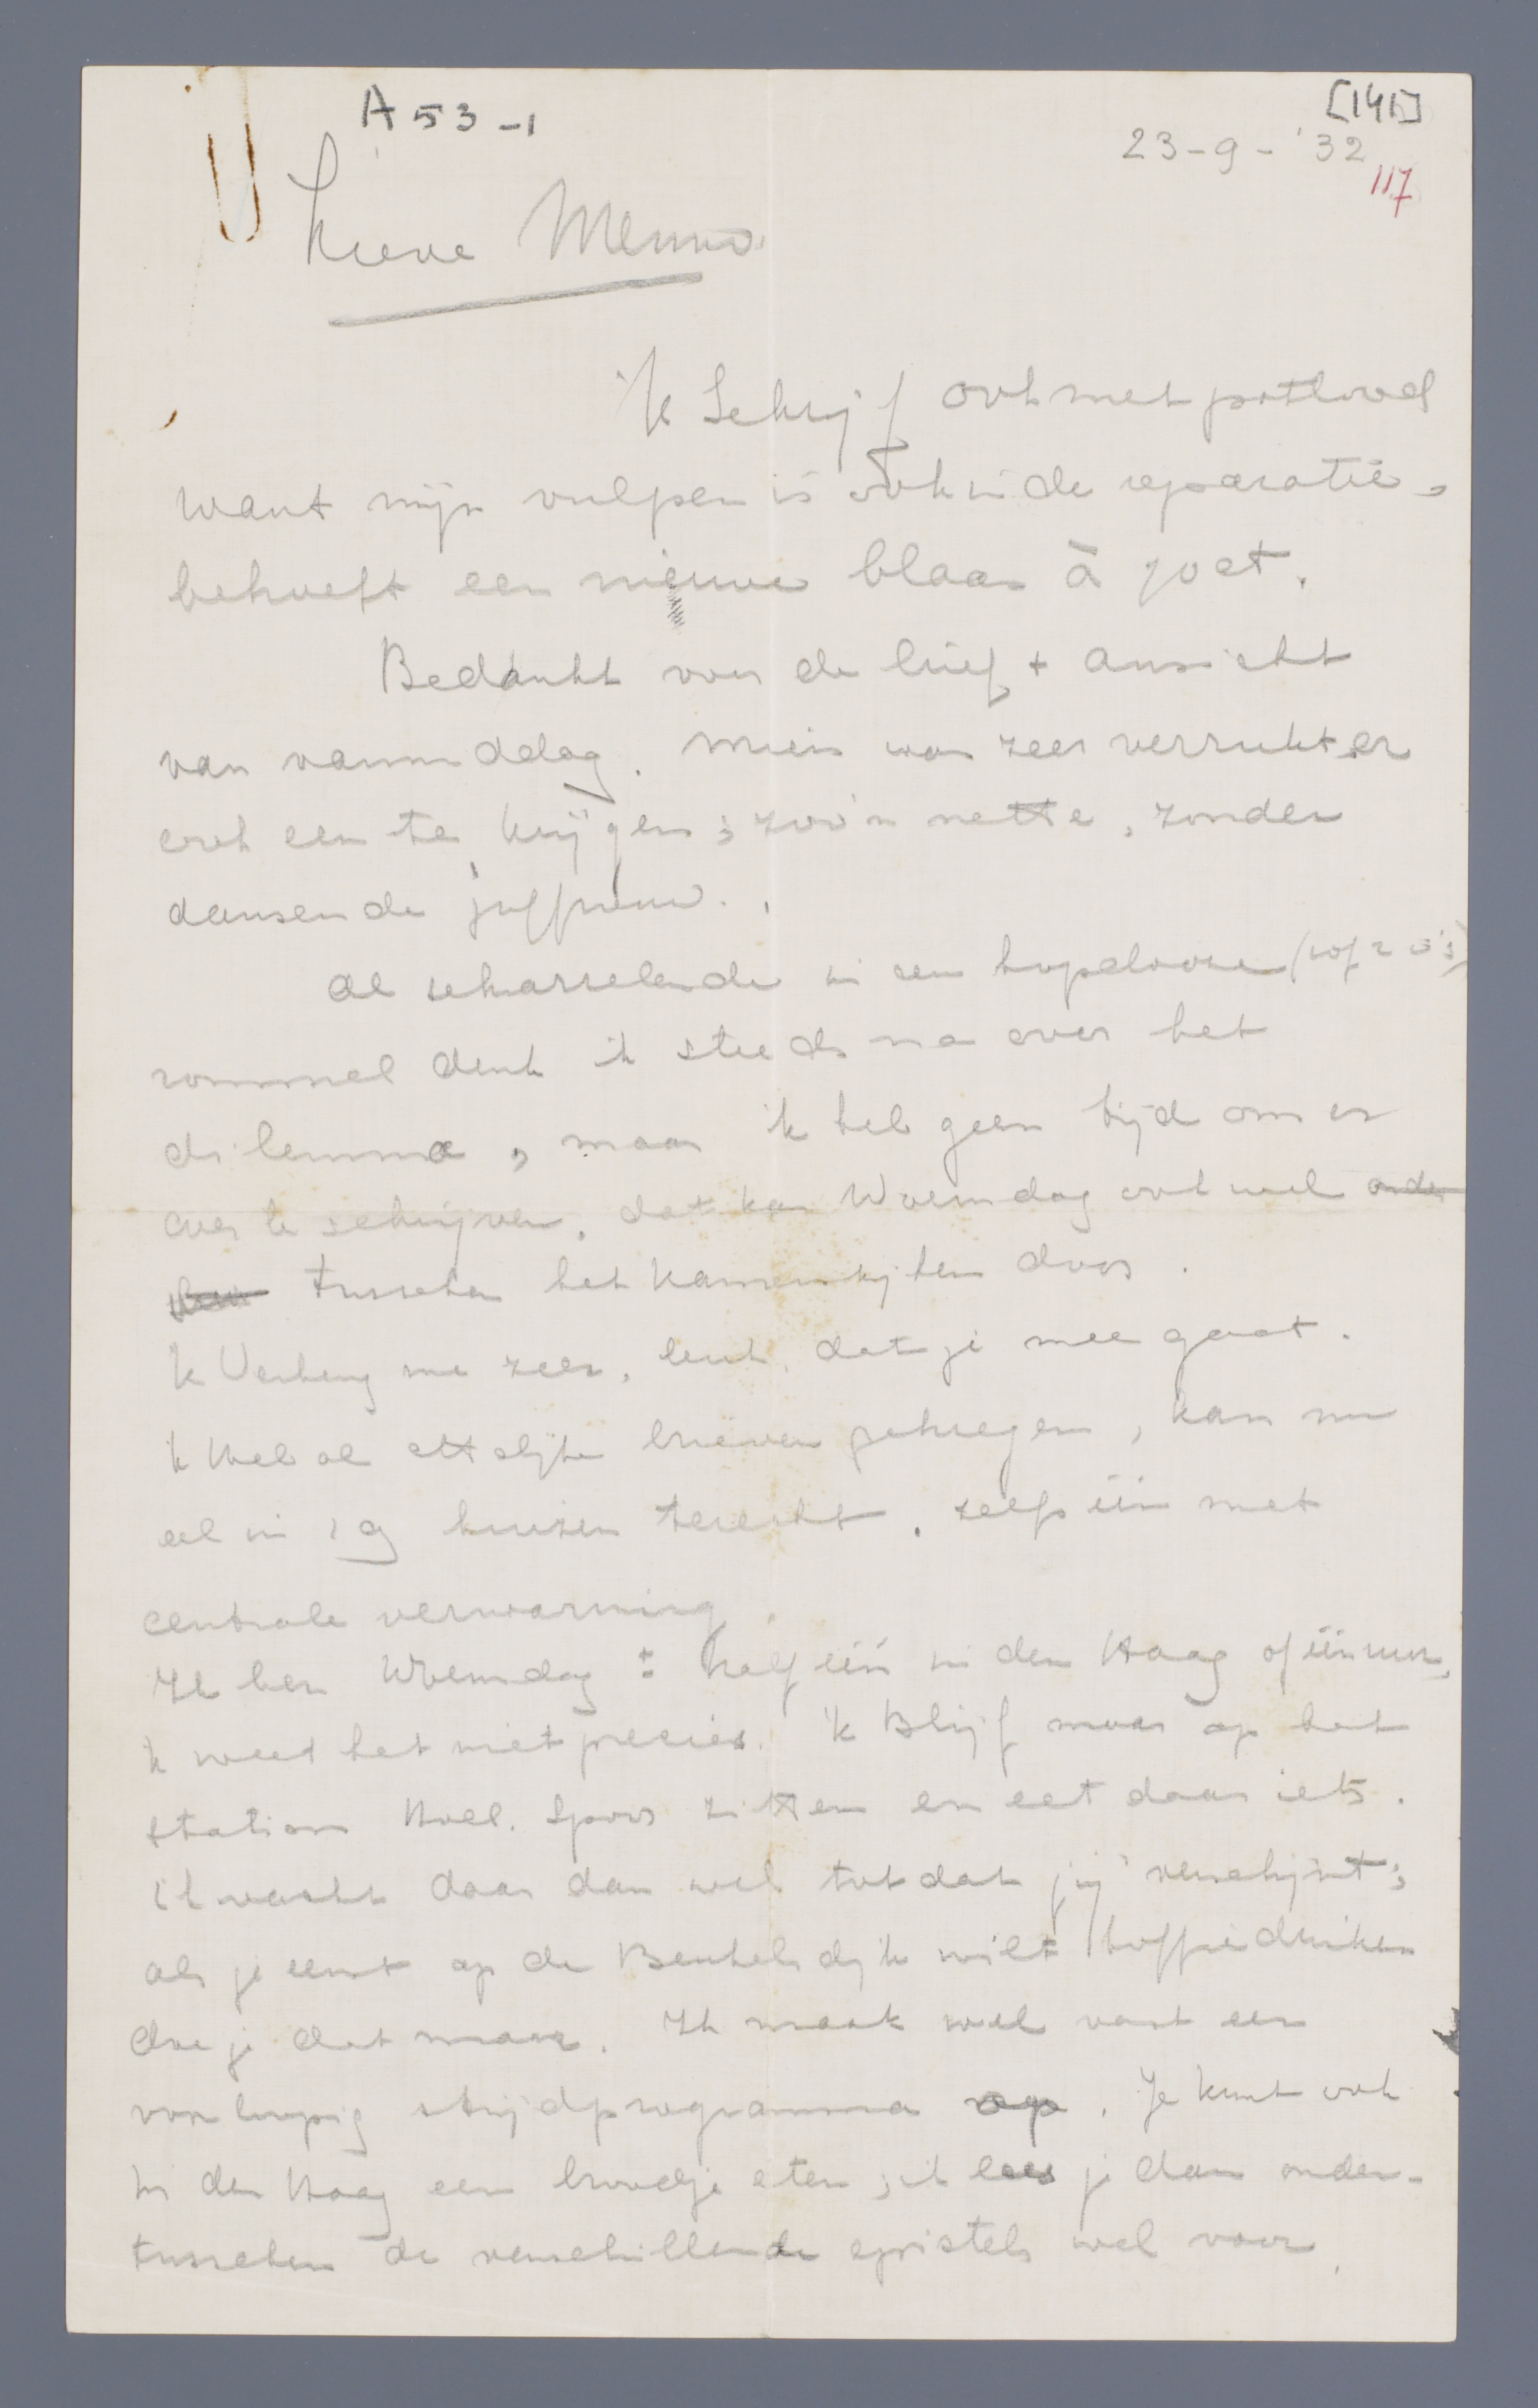 A 53-1
[141]
23-9-'32
117
Lieve Menno
'k Schrijf ook met potlood
want mijn vulpen is ook in de reparatie,
behoeft een nieuwe blaas à joet.
Bedankt voor de brief + ansicht
van vanmiddag. Mien was zeer verrukt er
ook een te krijgen; zoo'n nette, zonder
dansende juffrouw.
Al scharrelende in een hopelooze (of 2 o's)
rommel denk ik steeds na over het
dilemma, maar ik heb geen tijd om er
over te schrijven, dat kan Woensdag ook wel onder
tusschen het kamerkijken door.
'k Verheug me zeer, leuk, dat je mee gaat.
'k Heb al ettelijke brieven gekregen, kan nu
al in 19 huizen terecht, zelfs één met
centrale verwarming.
Ik ben Woensdag ± half één in den Haag of één uur,
'k weet het niet precies. 'k Blijf maar op het
station Holl. Spoor zitten en eet daar iets.
ik wacht daar dan wel totdat jij verschijnt;
als je eerst op de Beukelsdijk wilt koffiedrinken
doe je dat maar. Ik maak wel vast een
voorloopig strijdprogramma op. Je kunt ook
in den Haag een broodje eten, ik lees je dan onder-
tusschen de verschillende epistels wel voor.